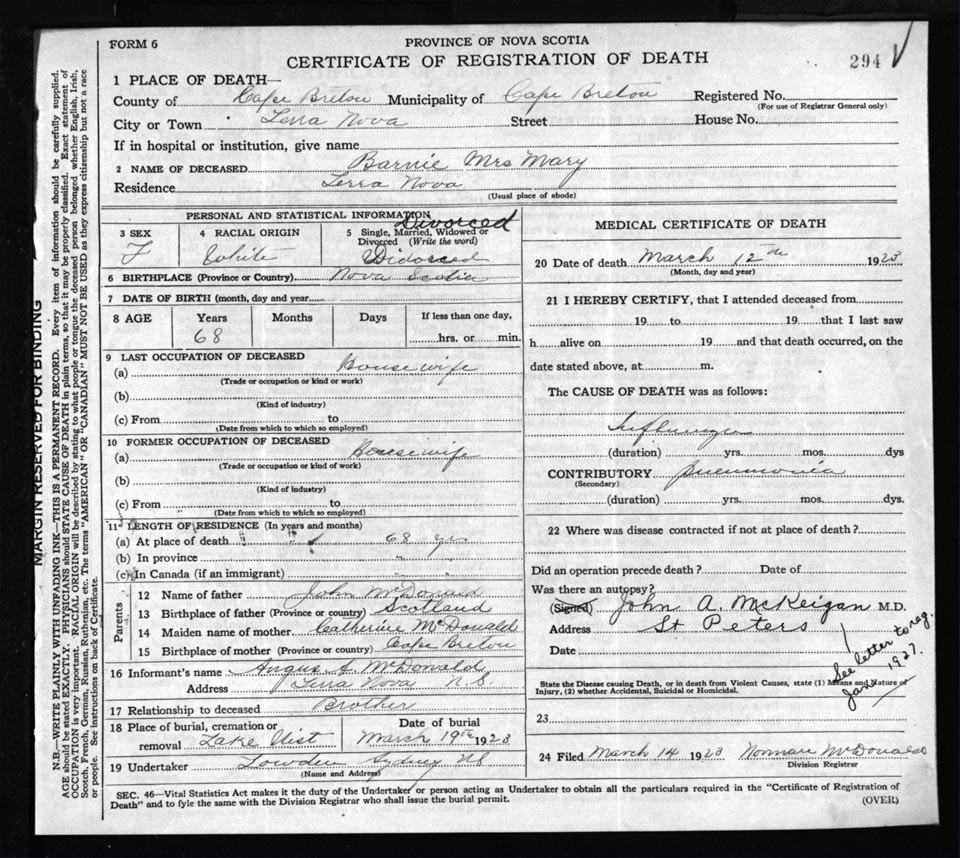 FORM 6
PROVINCE OF NOVA SCOTIA
CERTIFICATE OF REGISTRATION OF DEATH
294
1 PLACE OF DEATH—
County of Cape Breton Municipality of Cape Breton Registered No.
(For use of Registrar General only)
City or Town Terra Nova Street House No.
If in hospital or institution, give name
2 NAME OF DECEASED Barnie Mrs Mary
Residence Terra Nova
(Usual place of abode)
PERSONAL AND STATISTICAL INFORMATION
Divorced
3 SEX
F
4 RACIAL ORIGIN
White
5 Single, Married, Widowed or Divorced (Write the word)
Widowed
6 BIRTHPLACE (Province or Country) Nova Scotia
7 DATE OF BIRTH (month, day and year
8 AGE Years Months Days If less than one day,
68 hrs. or min.
9 LAST OCCUPATION OF DECEASED
(a) Housewife
(Trade or occupation or kind or work)
(b)
(Kind of industry)
(c) From to
(Date from which to which so employed)
10 FORMER OCCUPATION OF DECEASED
(a) Housewife
(Trade or occupation or kind of work)
(b)
(Kind of industry)
(c) From to
(Date from which to which so employed)
11 LENGTH OF RESIDENCE (In years and months)
(a) At place of death 68 yrs
(b) In province "
(c) In Canada (if an immigrant)
Parents
12 Name of father John McDonald
13 Birthplace of father (Province or country) Scotland
14 Maiden name of mother Catherine McDonald
15 Birthplace of mother (Province or country) Cape Breton
16 Informant's name Angus A. McDonald
Address Terra Nova N.S.
17 Relationship to deceased Brother
18 Place of burial, cremation or removal Lake Uist
Date of burial March 19th 1923
19 Undertaker Lowden Sydney NS
(Name and Address)
MEDICAL CERTIFICATE OF DEATH
20 Date of death March 12th 1923
(Month, day and year)
21 I HEREBY CERTIFY, that I attended deceased from
19 to 19 that I last saw
h alive on 19 and that death occurred, on the
date stated above, at m.
The CAUSE OF DEATH was as follows:
Influenza
(duration) yrs. mos. dys
CONTRIBUTORY Pneumonia
(Secondary)
(duration) yrs. mos. dys.
22 Where was disease contracted if not at place of death?
Did an operation precede death? Date of
Was there an autopsy?
(Signed) John A. McKeigan M.D.
Address St Peters
Date
See letter to reg. Jany 1927.
State the Disease causing Death, or in death from Violent Causes, state (1) Means and Nature of
Injury, (2) whether Accidental, Suicidal or Homicidal.
23
24 Filed March 14 1923 Norman McDonald
Division Registrar
SEC. 46—Vital Statistics Act makes it the duty of the Undertaker or person acting as Undertaker to obtain all the particulars required in the "Certificate of Registration of
Death" and to fyle the same with the Division Registrar who shall issue the burial permit.
(OVER)
MARGIN RESERVED FOR BINDING
N.B.—WRITE PLAINLY WITH UNFADING INK—THIS IS A PERMANENT RECORD. Every item of information should be carefully supplied.
AGE should be stated EXACTLY. PHYSICIANS should STATE CAUSE OF DEATH in plain terms, so that it may be properly classified. Exact statement of
OCCUPATION is very important. RACIAL ORIGIN will be described by stating to what people or tongue the deceased person belonged whether English, Irish,
Scotch, French, German, Russian, Ruthenian, etc. The terms "AMERICAN" OR "CANADIAN" MUST NOT BE USED as they express citizenship but not a race
or people. See instructions on back of Certificate.